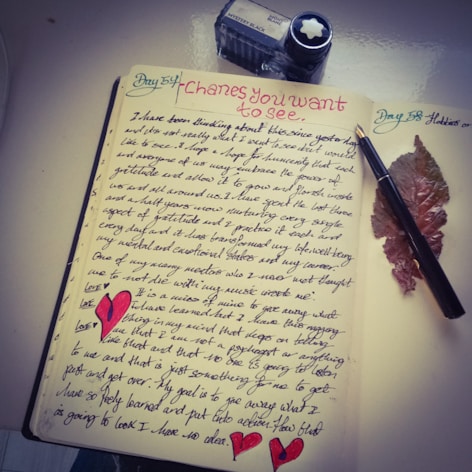 MONT
BLANC
MYSTERY BLACK
Day 57
-Chanes You want
to see.
Day 58 Hobbies or
I have been thinking about this since yesterday
and do not really what I want to see but I would
like to see. I hope a hope for humanity that each
and everyone of us may embrace the power of
gratitude and allow it to grow and florish inside
us and all around us. I have spent the last three
and a half years now nurturing every single
aspect of gratitude and I practice it each and
every day and it has transformed my life, well being
my mental and emotional states and my career.
One of my many mentors who I never met thought
me to not die with "my music inside me".
LOVE It is a mission of mine to give away what
LOVE I have learned but I have this nagging
LOVE thing in my mind that keeps on telling
me that I am not a psychologist or anything
like that and that no one is going to listen
to me and that is just something for me to get
past and get over. My goal is to give away what I
have so freely learned and put into action. How that
is going to look I have no idea.